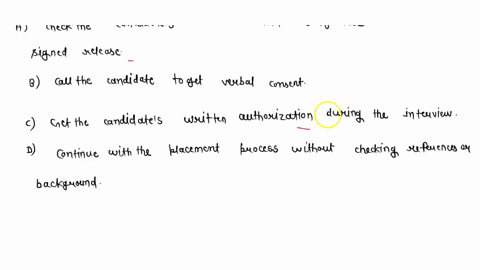 A) Check the
signed release.
B) Call the candidate to get verbal consent.
C) Get the candidate's written authorization during the interview.
D) Continue with the placement process without checking references or
background.